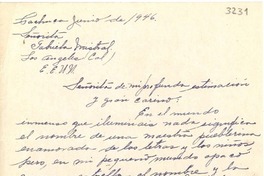 3231
Pachuca Junio de/1946.
Señorita
Gabriela Mistral
Los Angeles Cal)
E.E.U.U.
Señorita de mi profunda estimación
y gran cariño:
En el mundo
inmenso que ilumináis nada significa
el nombre de una maestra pueblerina
enamorada de las letras y los niños
pero, en mi pequeño mundo opacó
el nombre y la